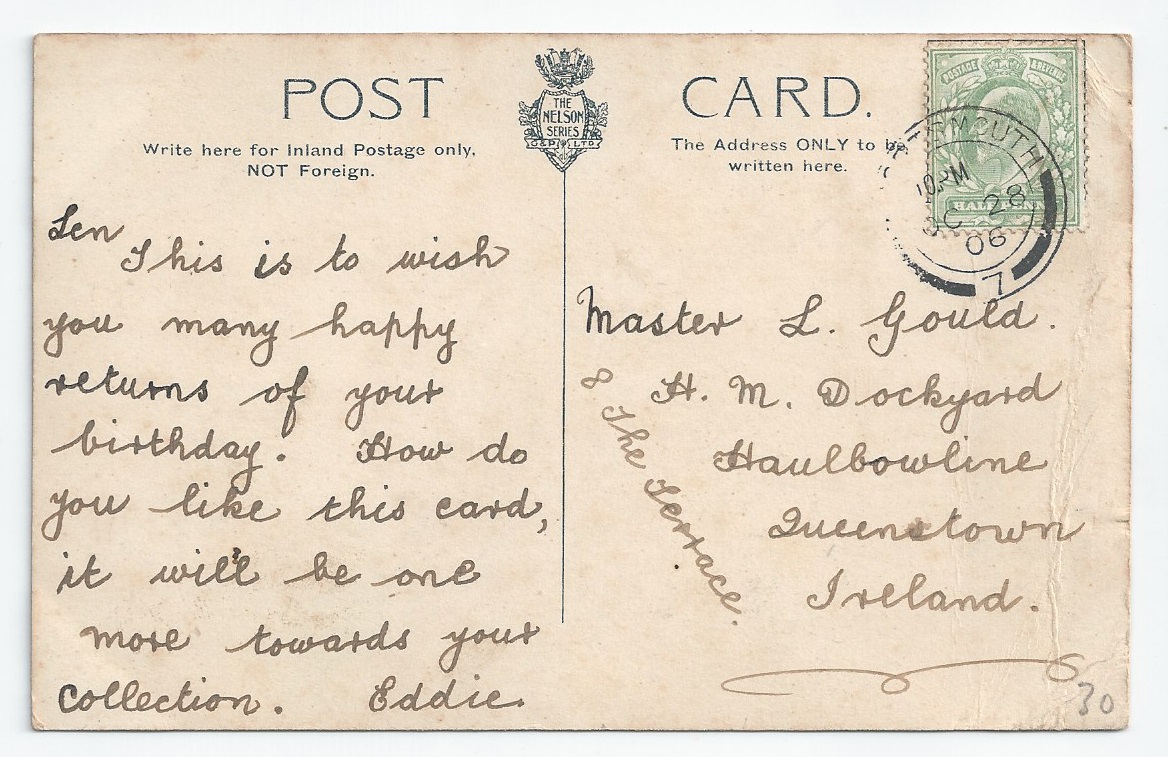 POST CARD.
THE
NELSON
SERIES
G & P LTD
Write here for Inland Postage only,
NOT Foreign.
The Address ONLY to be
written here.
POSTAGE & REVENUE
HALF PENNY
10.PM
28
06
7
Len
This is to wish
you many happy
returns of your
birthday. How do
you like this card,
it will be one
more towards your
collection. Eddie.
Master L. Gould.
8 The Terrace.
H. M. Dockyard
Haulbowline
Queenstown
Ireland.
30